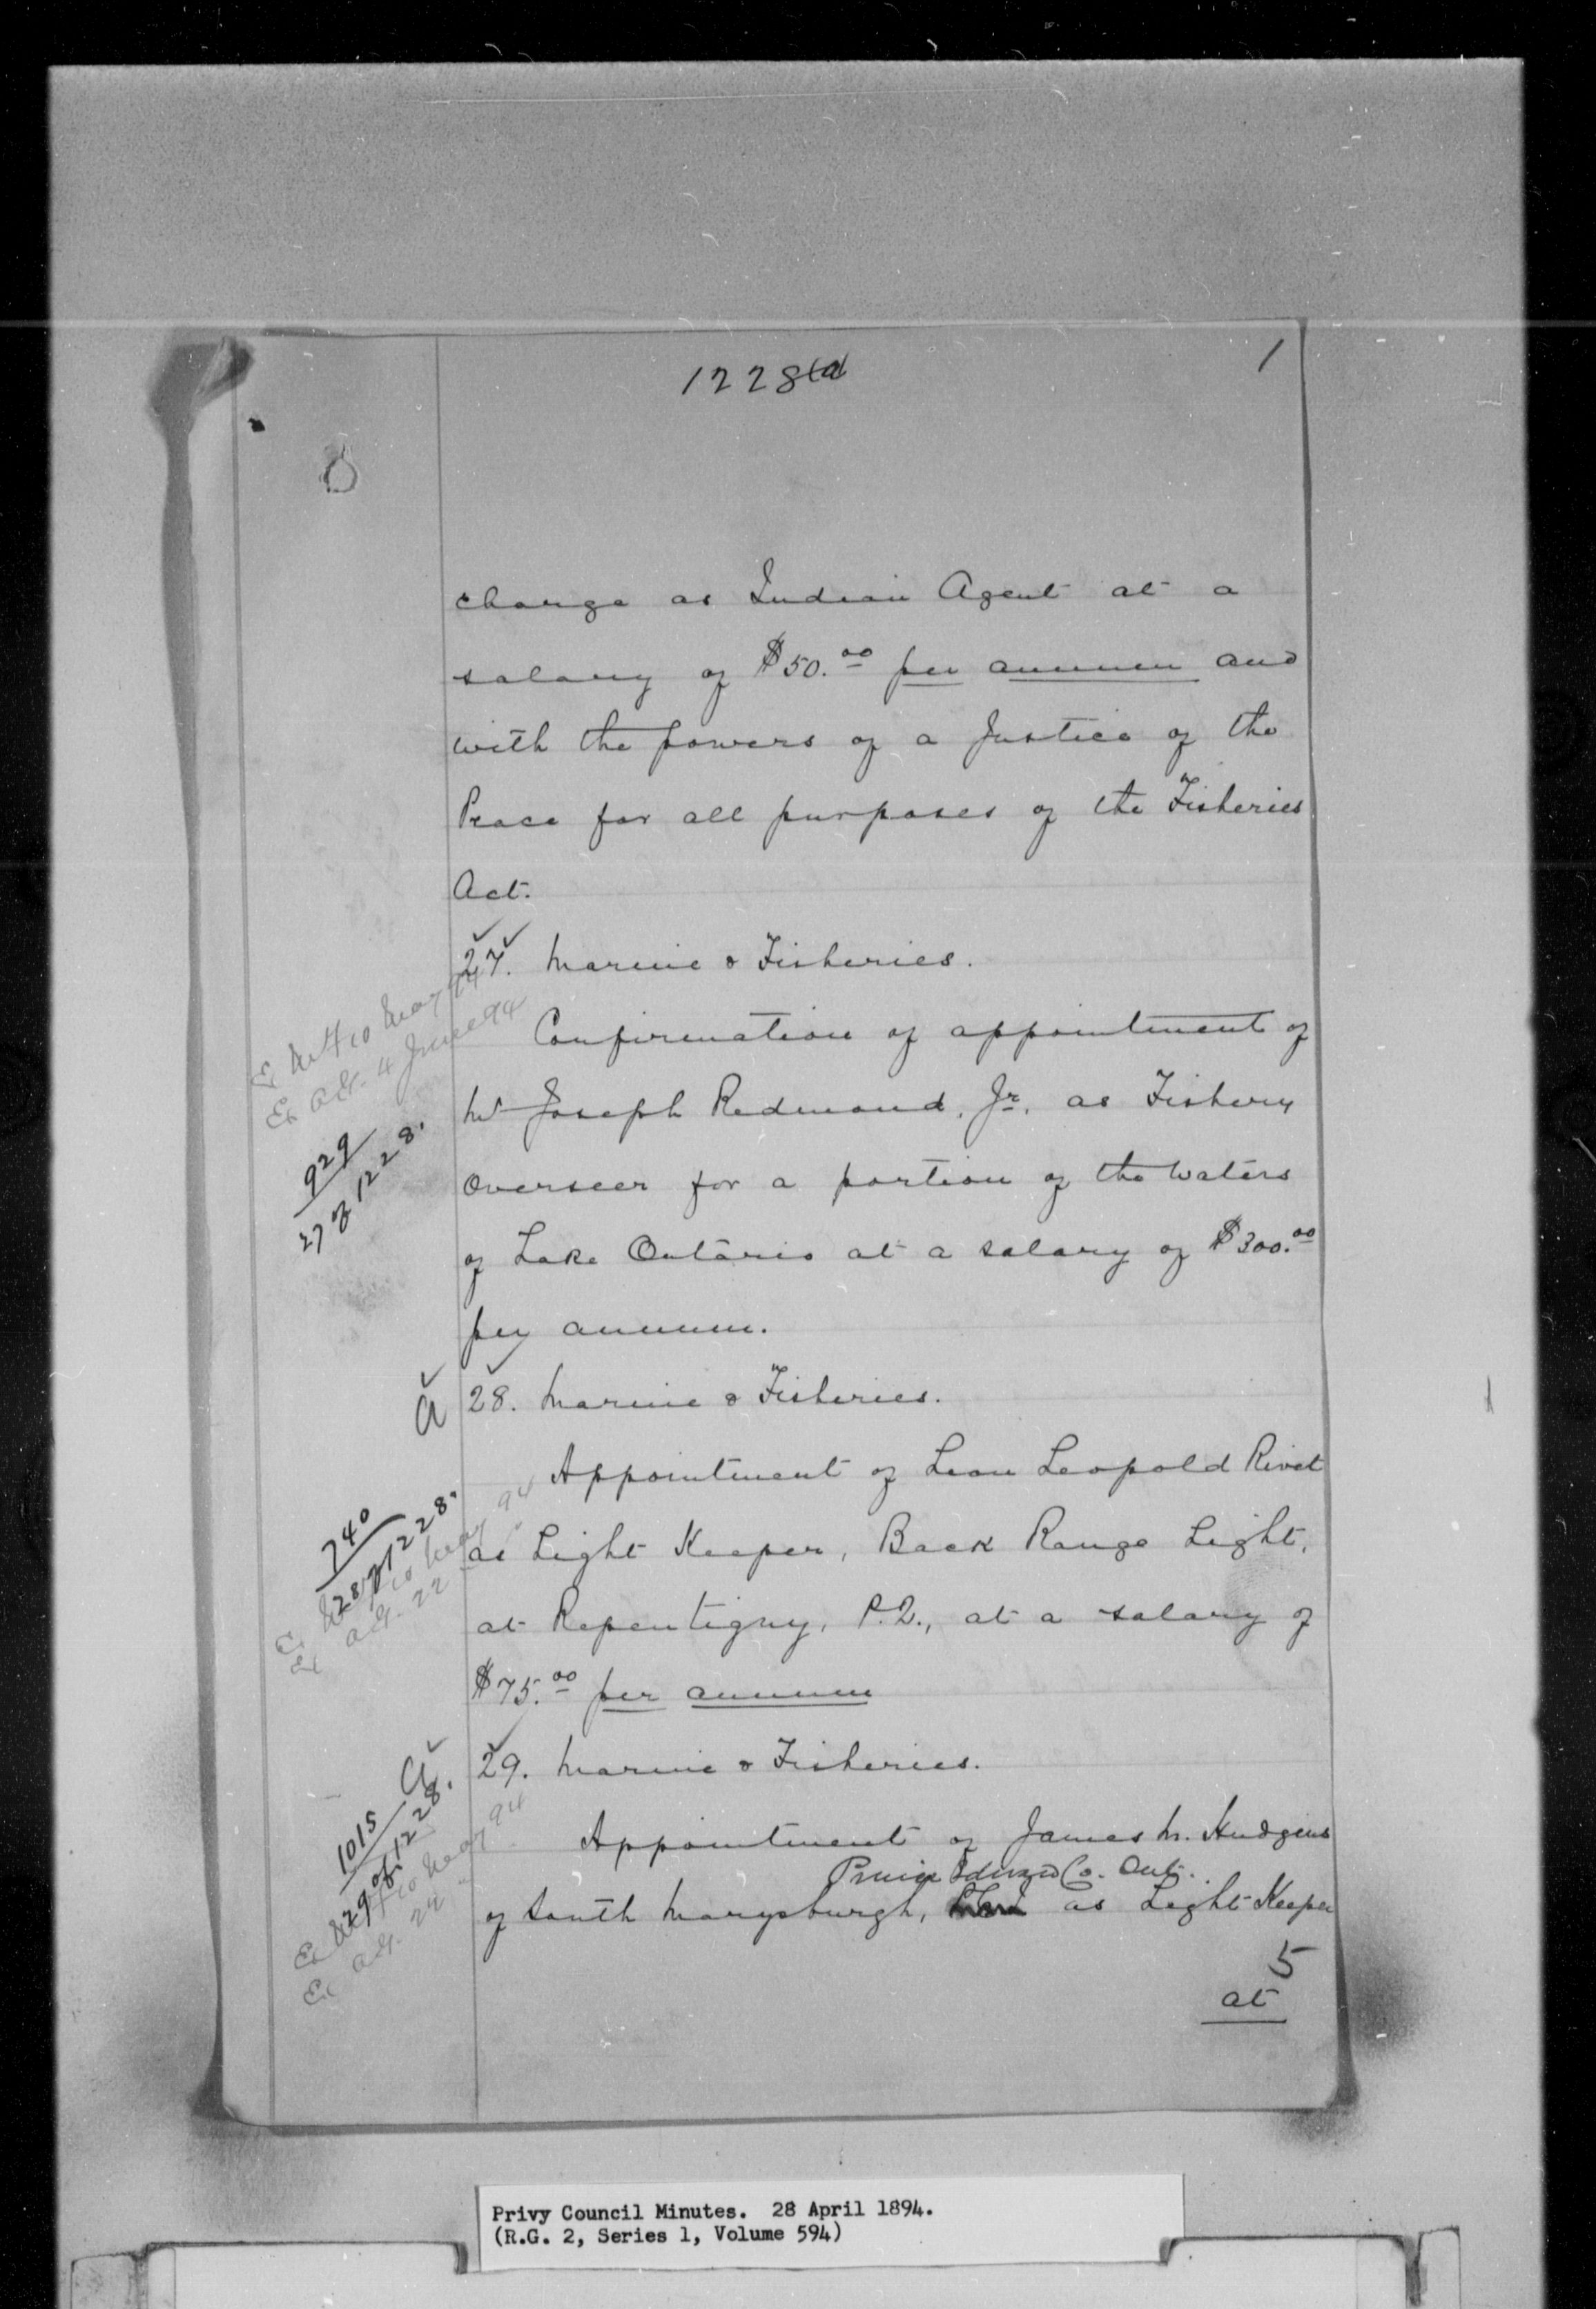 1228
1
charge as Indian Agent at a
salary of $50.00 per annum and
with the powers of a Justice of the
Peace for all purposes of the Fisheries
Act.
27. Marine & Fisheries.
Ex M&F 10 May 94
Ex A.G. 4 June 94
929
27 of 1228.
Confirmation of appointment of
Mr Joseph Redmond, Jr. as Fishery
Overseer for a portion of the waters
of Lake Ontario at a salary of $300.00
per annum.
a
28. Marine & Fisheries.
740
28 of 1228.
10 May 94
Ex A.G. 22 "
Appointment of Leon Leopold Rivet
as Light Keeper, Back Range Light,
at Repentigny, P.Q., at a salary of
$75.00 per annum
a
29. Marine & Fisheries.
1015
29 of 1228.
10 May 94
Ex A.G. 22 "
Appointment of James M. Hudgins
Prince Edward Co. Ont.
of South Marysburgh, as Light Keeper
5
at
Privy Council Minutes. 28 April 1894.
(R.G. 2, Series 1, Volume 594)